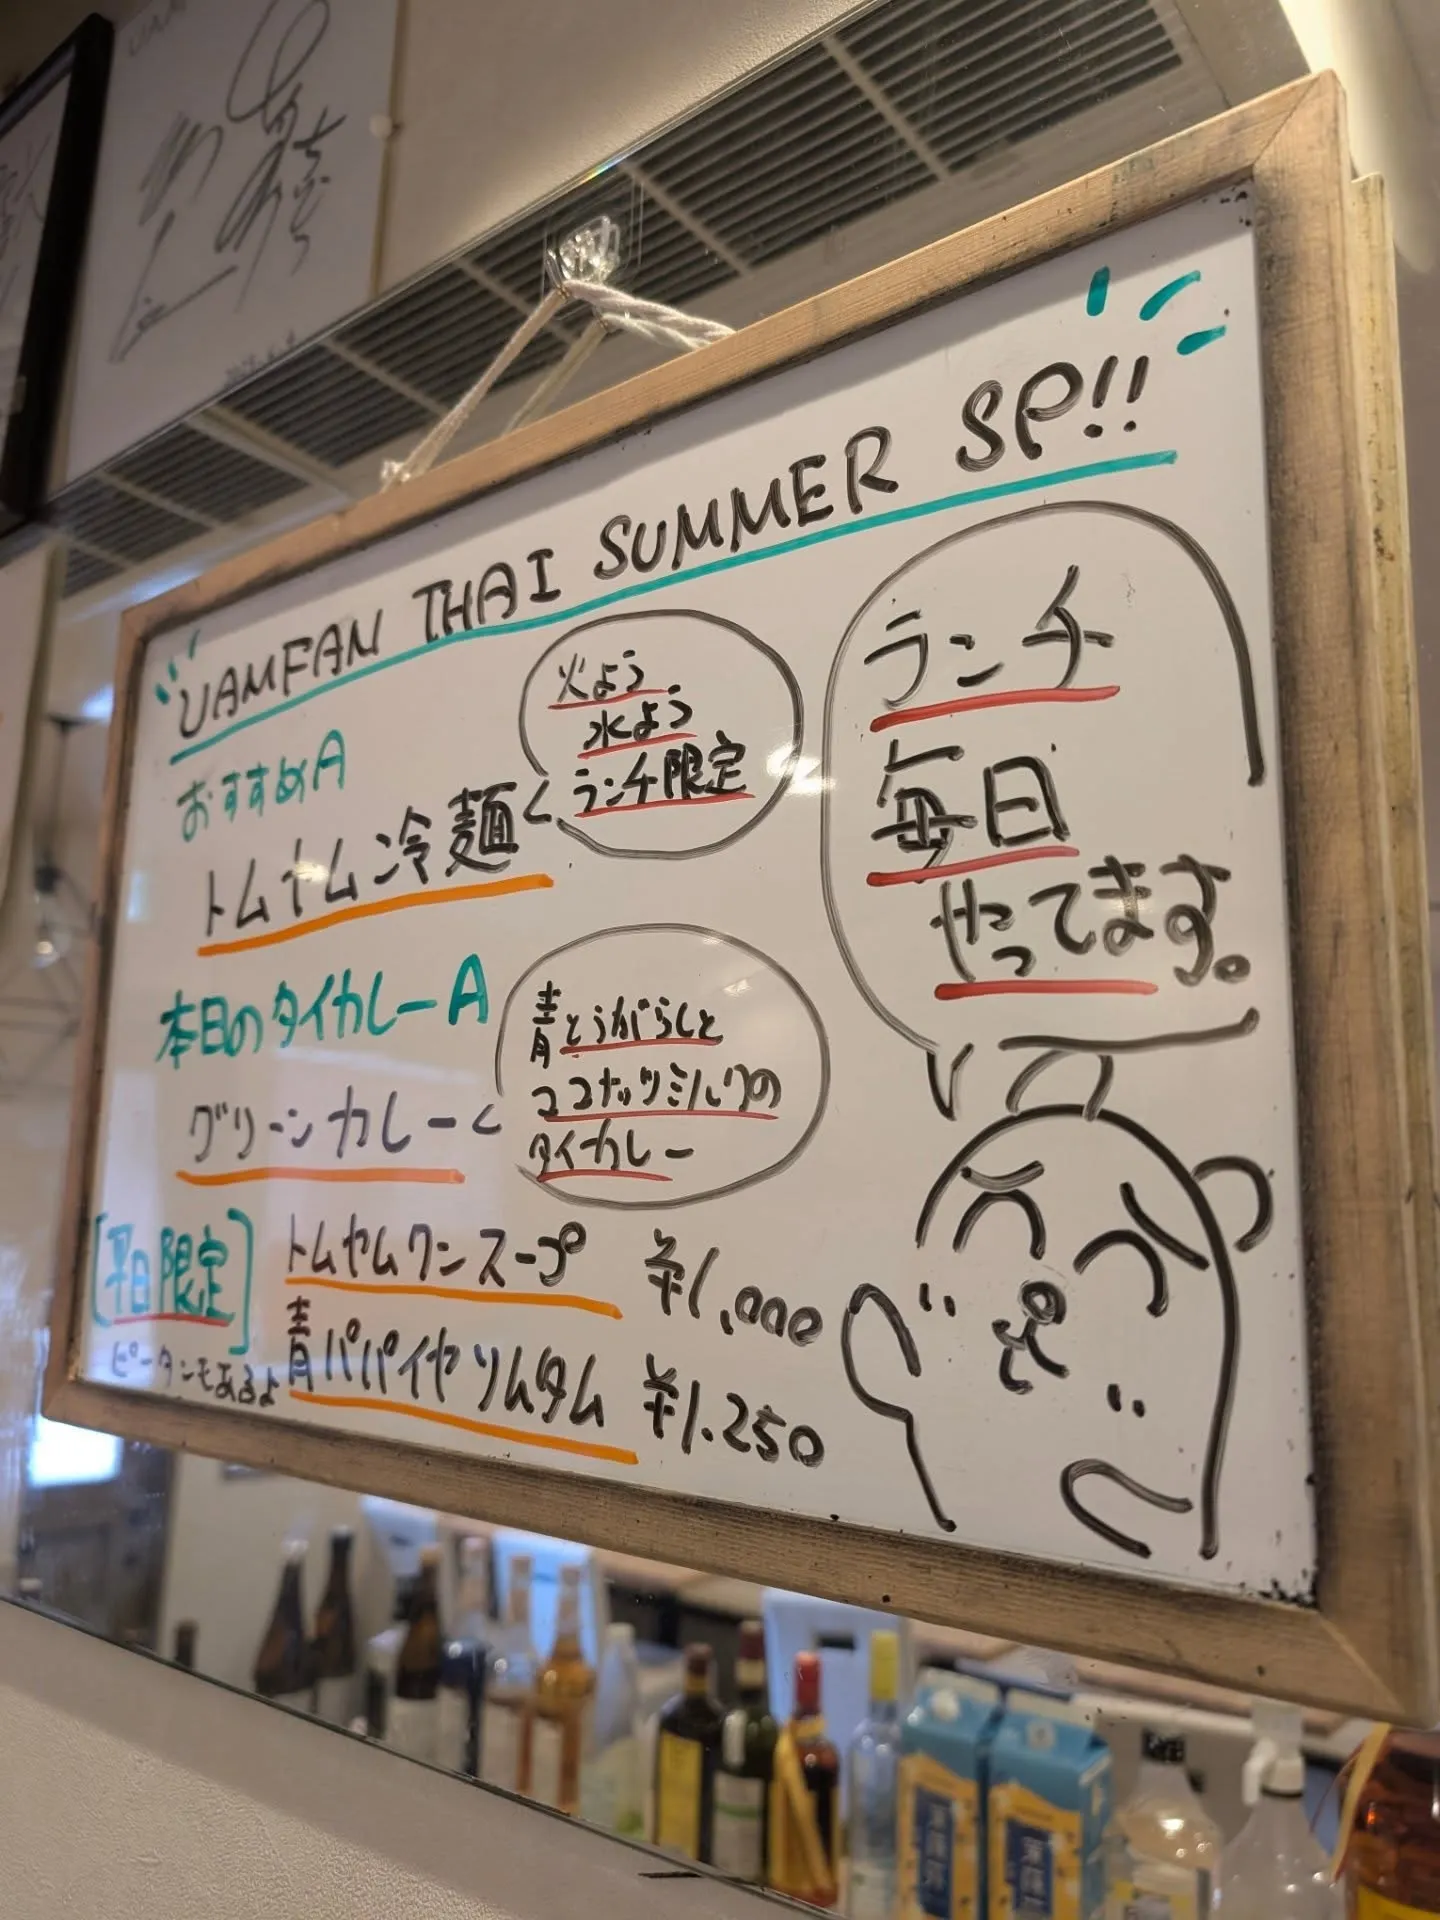 UAMFAN THAI SUMMER SP!!
おすすめA
トムヤム冷麺
火よう
水よう
ランチ限定
本日のタイカレーA
グリーンカレー
青とうがらしと
ココナッツミルクの
タイカレー
[平日限定]
ピータンもあるよ
トムヤムクンスープ ¥1,000
青パパイヤソムタム ¥1.250
ランチ
毎日
やってます。